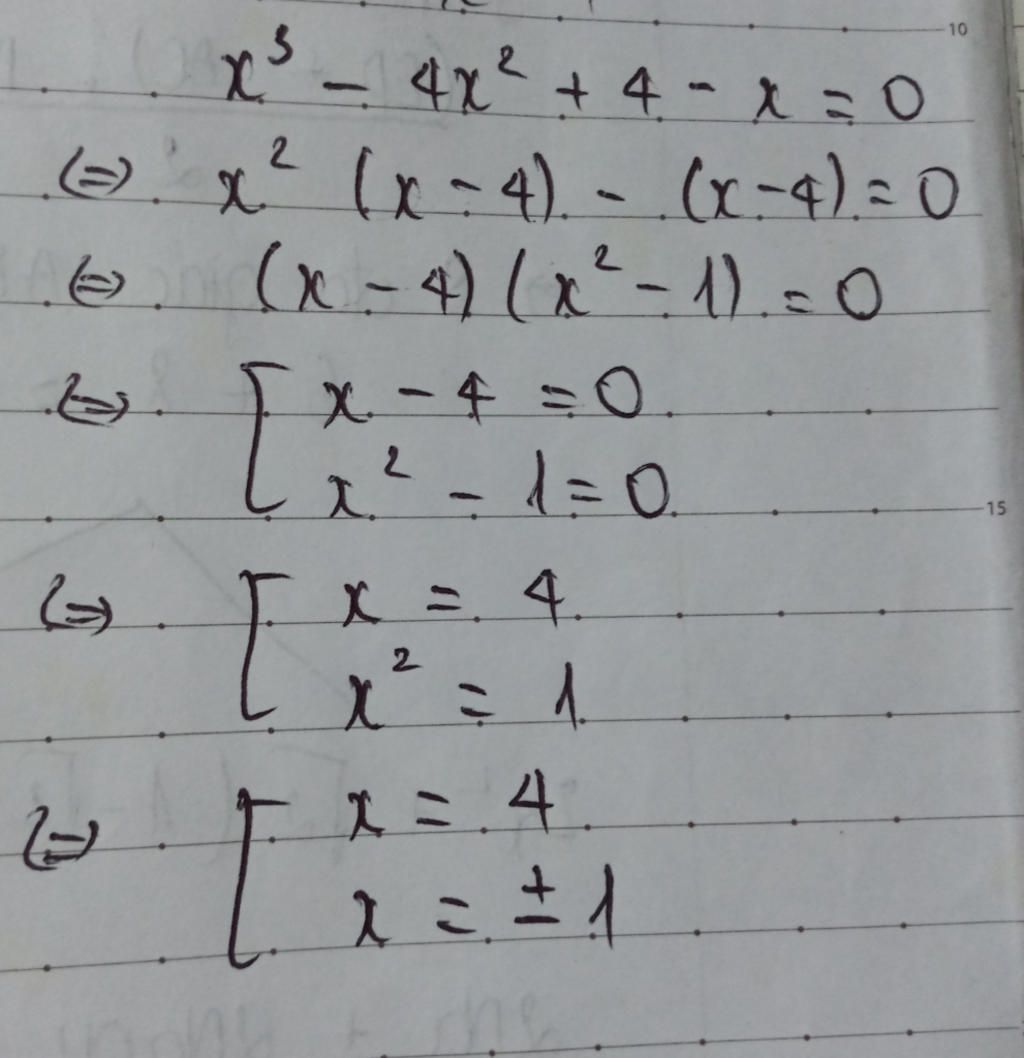 10
x³ - 4x² + 4 - x = 0
(=) x² (x - 4) - (x - 4) = 0
(=) (x - 4) (x² - 1) = 0
(=) [ x - 4 = 0
x² - 1 = 0
15
(=) [ x = 4
x² = 1
(=) [ x = 4
x = ± 1